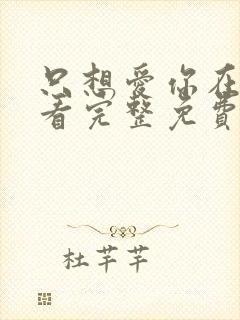 只想愛你在
看完整免費
杜芊芊